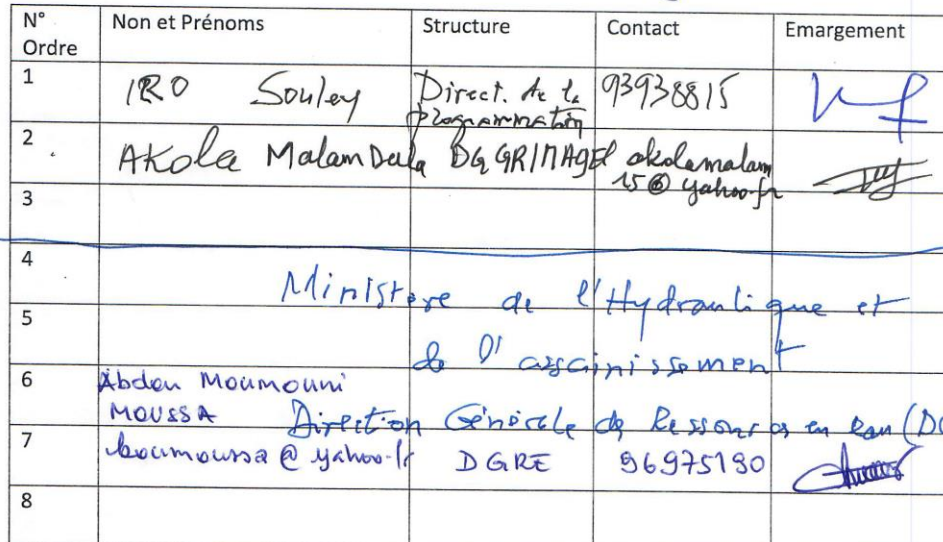 N° Ordre Non et Prénoms Structure Contact Emargement
1 IRO Souley Direct. de la programmation 93938815
2 AKola MalamDala DG GR/MAGEL akolamalam15@yahoo.fr
3
4 Ministere de l'Hydraulique et
5 de l'assainissement
6 Abdou Moumouni
MOUSSA Direction Générale de Ressources en eau (DG
7 boumoussa@yahoo.fr DGRE 96975190
8